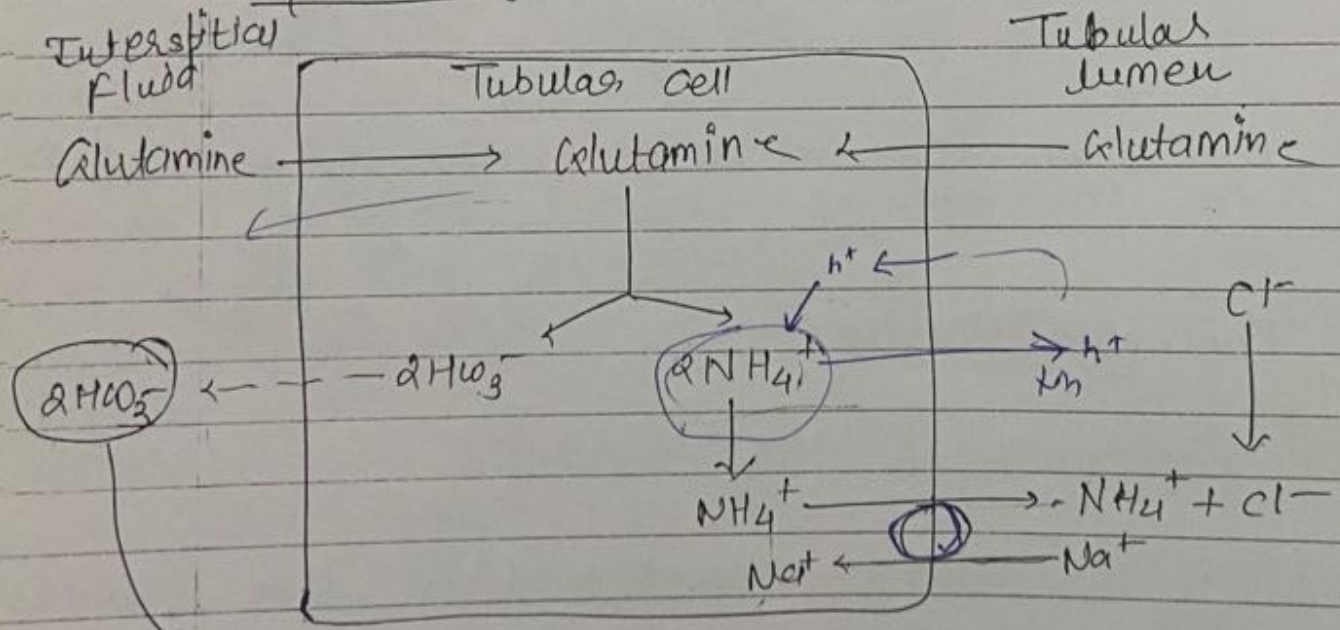 Interspitial Fluid
Tubular cell
Tubular lumen
Glutamine → Glutamine ← Glutamine
h⁺ ←
Cl⁻
2HCO₃⁻ ← 2HCO₃⁻
2NH₄⁺ → h⁺
NH₄⁺ → NH₄⁺ + Cl⁻
Na⁺ ← Na⁺